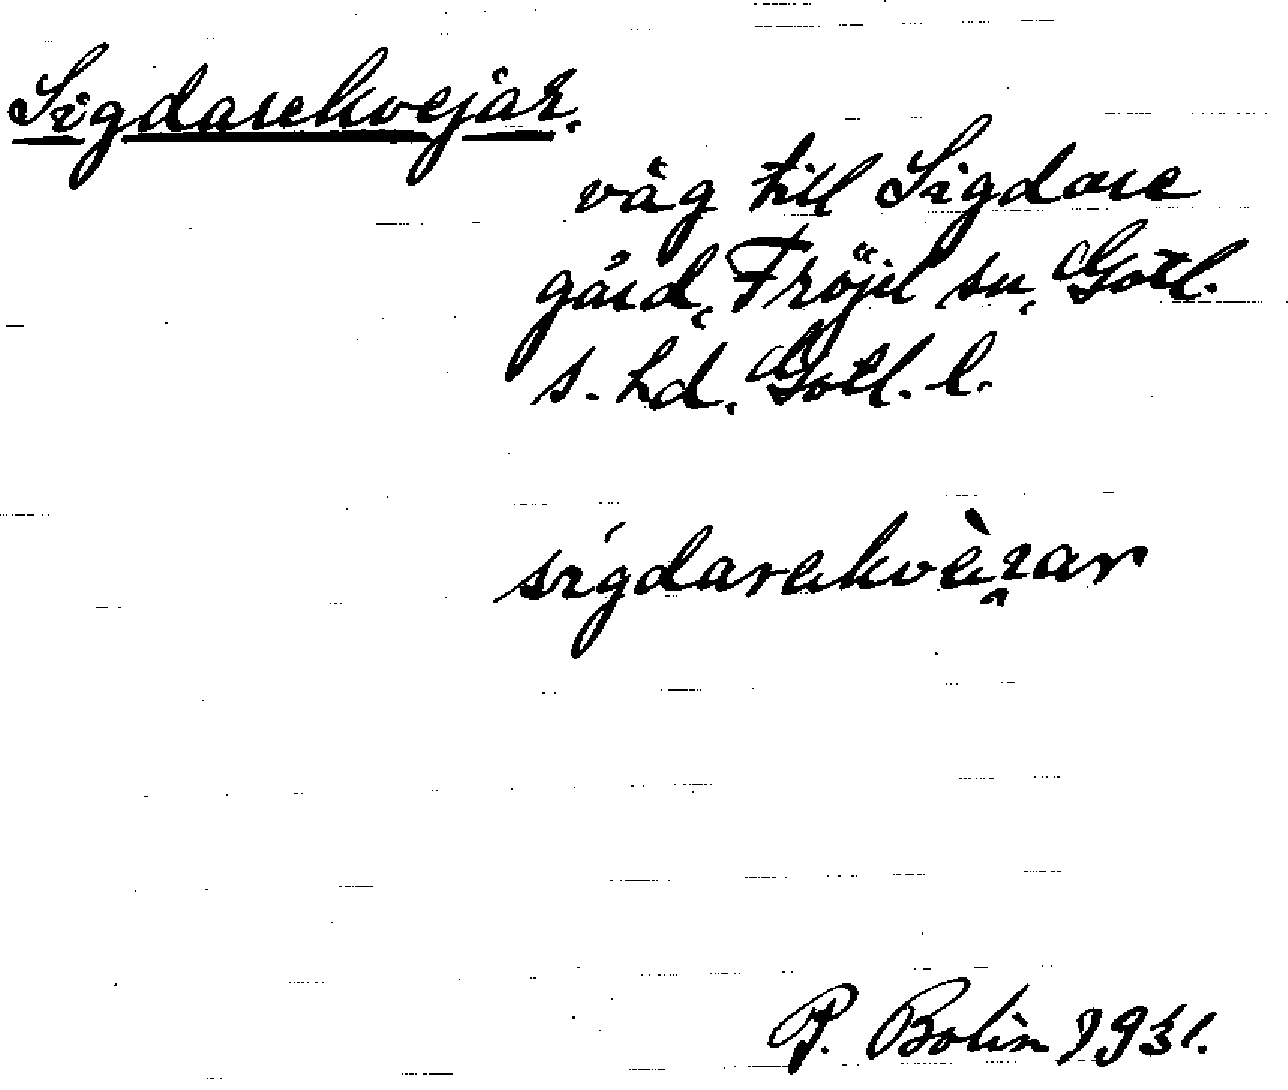 Sigdarekvejar.
väg till Sigdare
gård, Fröjel sn, Gotl.
s. hd, Gotl. l.
sígdarakvèᶇar
P. Bolin 1931.